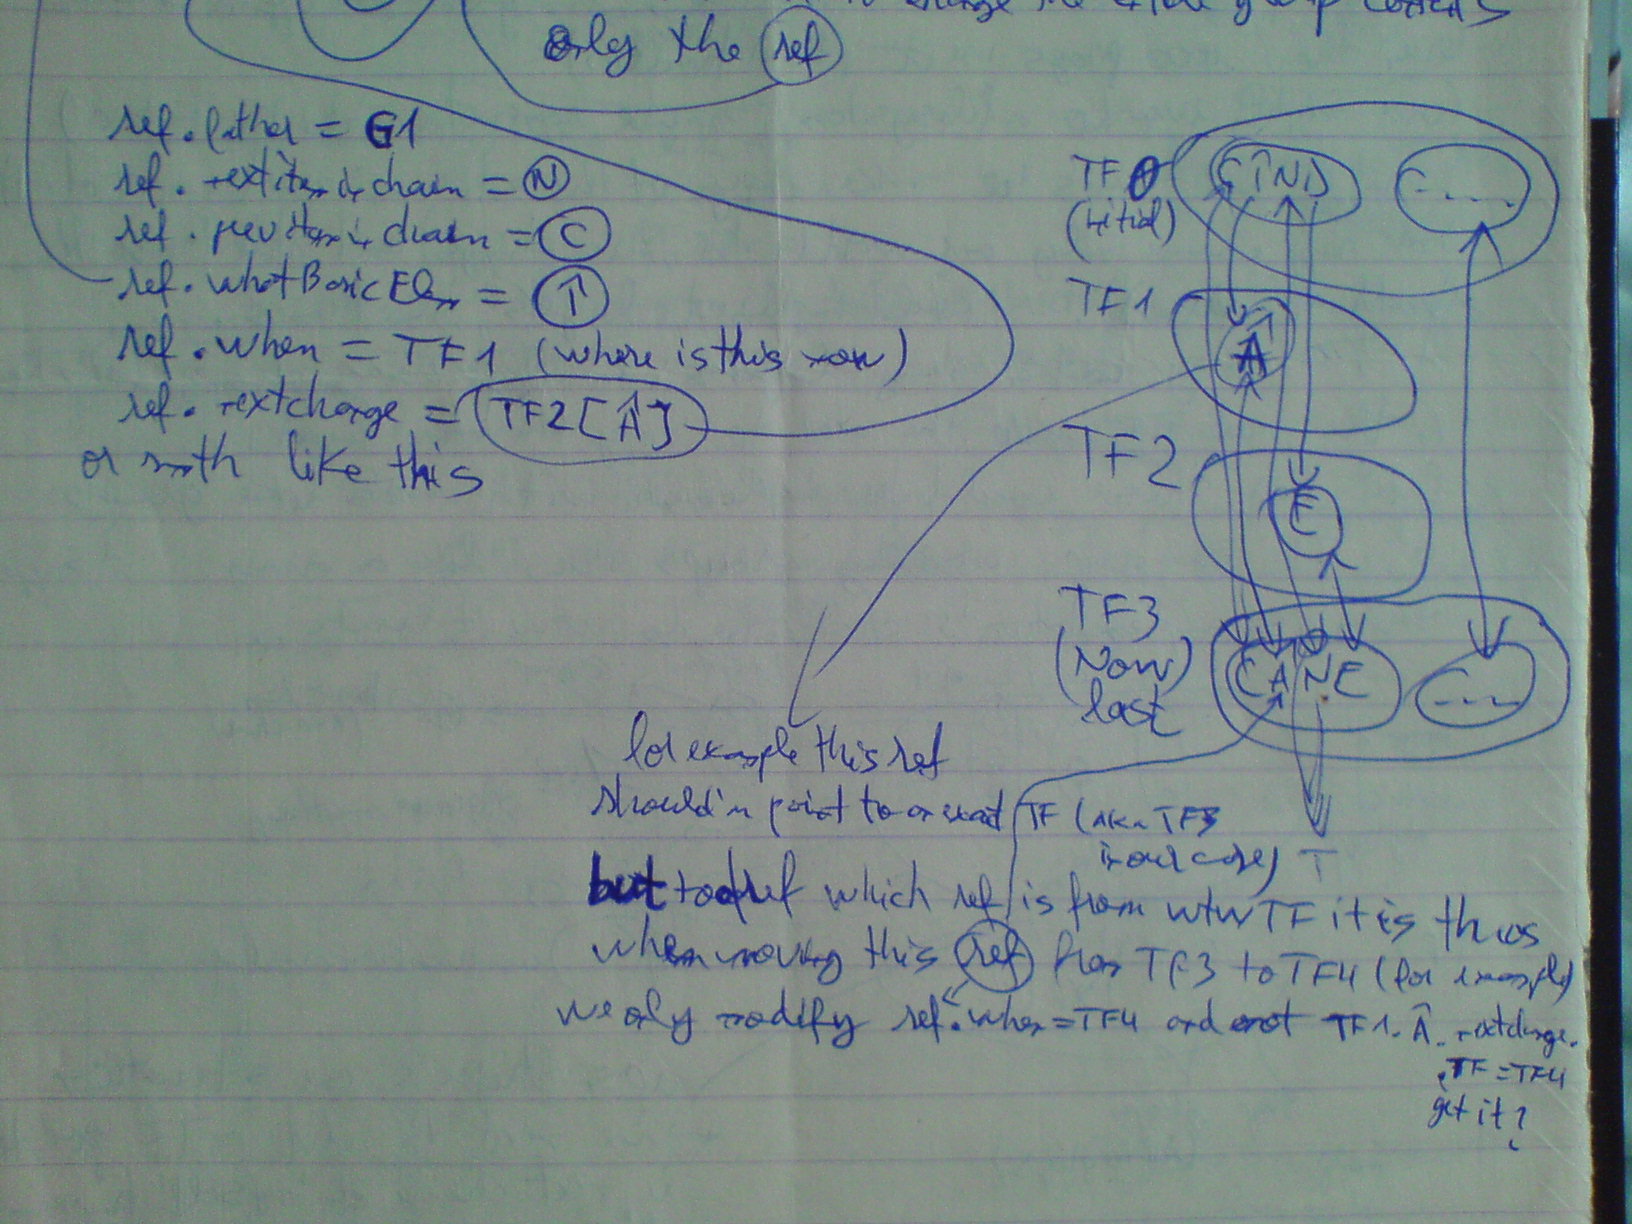 to change the entire group contents
only the ref
ref.father = G1
ref.nextiteminchain = N
ref.previteminchain = C
ref.whatBasicElem = Î
ref.when = TF1 (where is this now)
ref.nextchange = TF2[Â]
or smth like this
TF0 CÎND - - - -
(initial)
TF1
Â
TF2
E
TF3
(Now)
last
CANE - - -
for example this ref
shouldn point to an exact TF (aka TF3
in our case) T
but to a ref which ref is from wtw TF it is thus
when moving this ref from TF3 to TF4 (for example)
we only modify ref.when=TF4 and not TF1.Â.nextchange.
TF=TF4
get it?